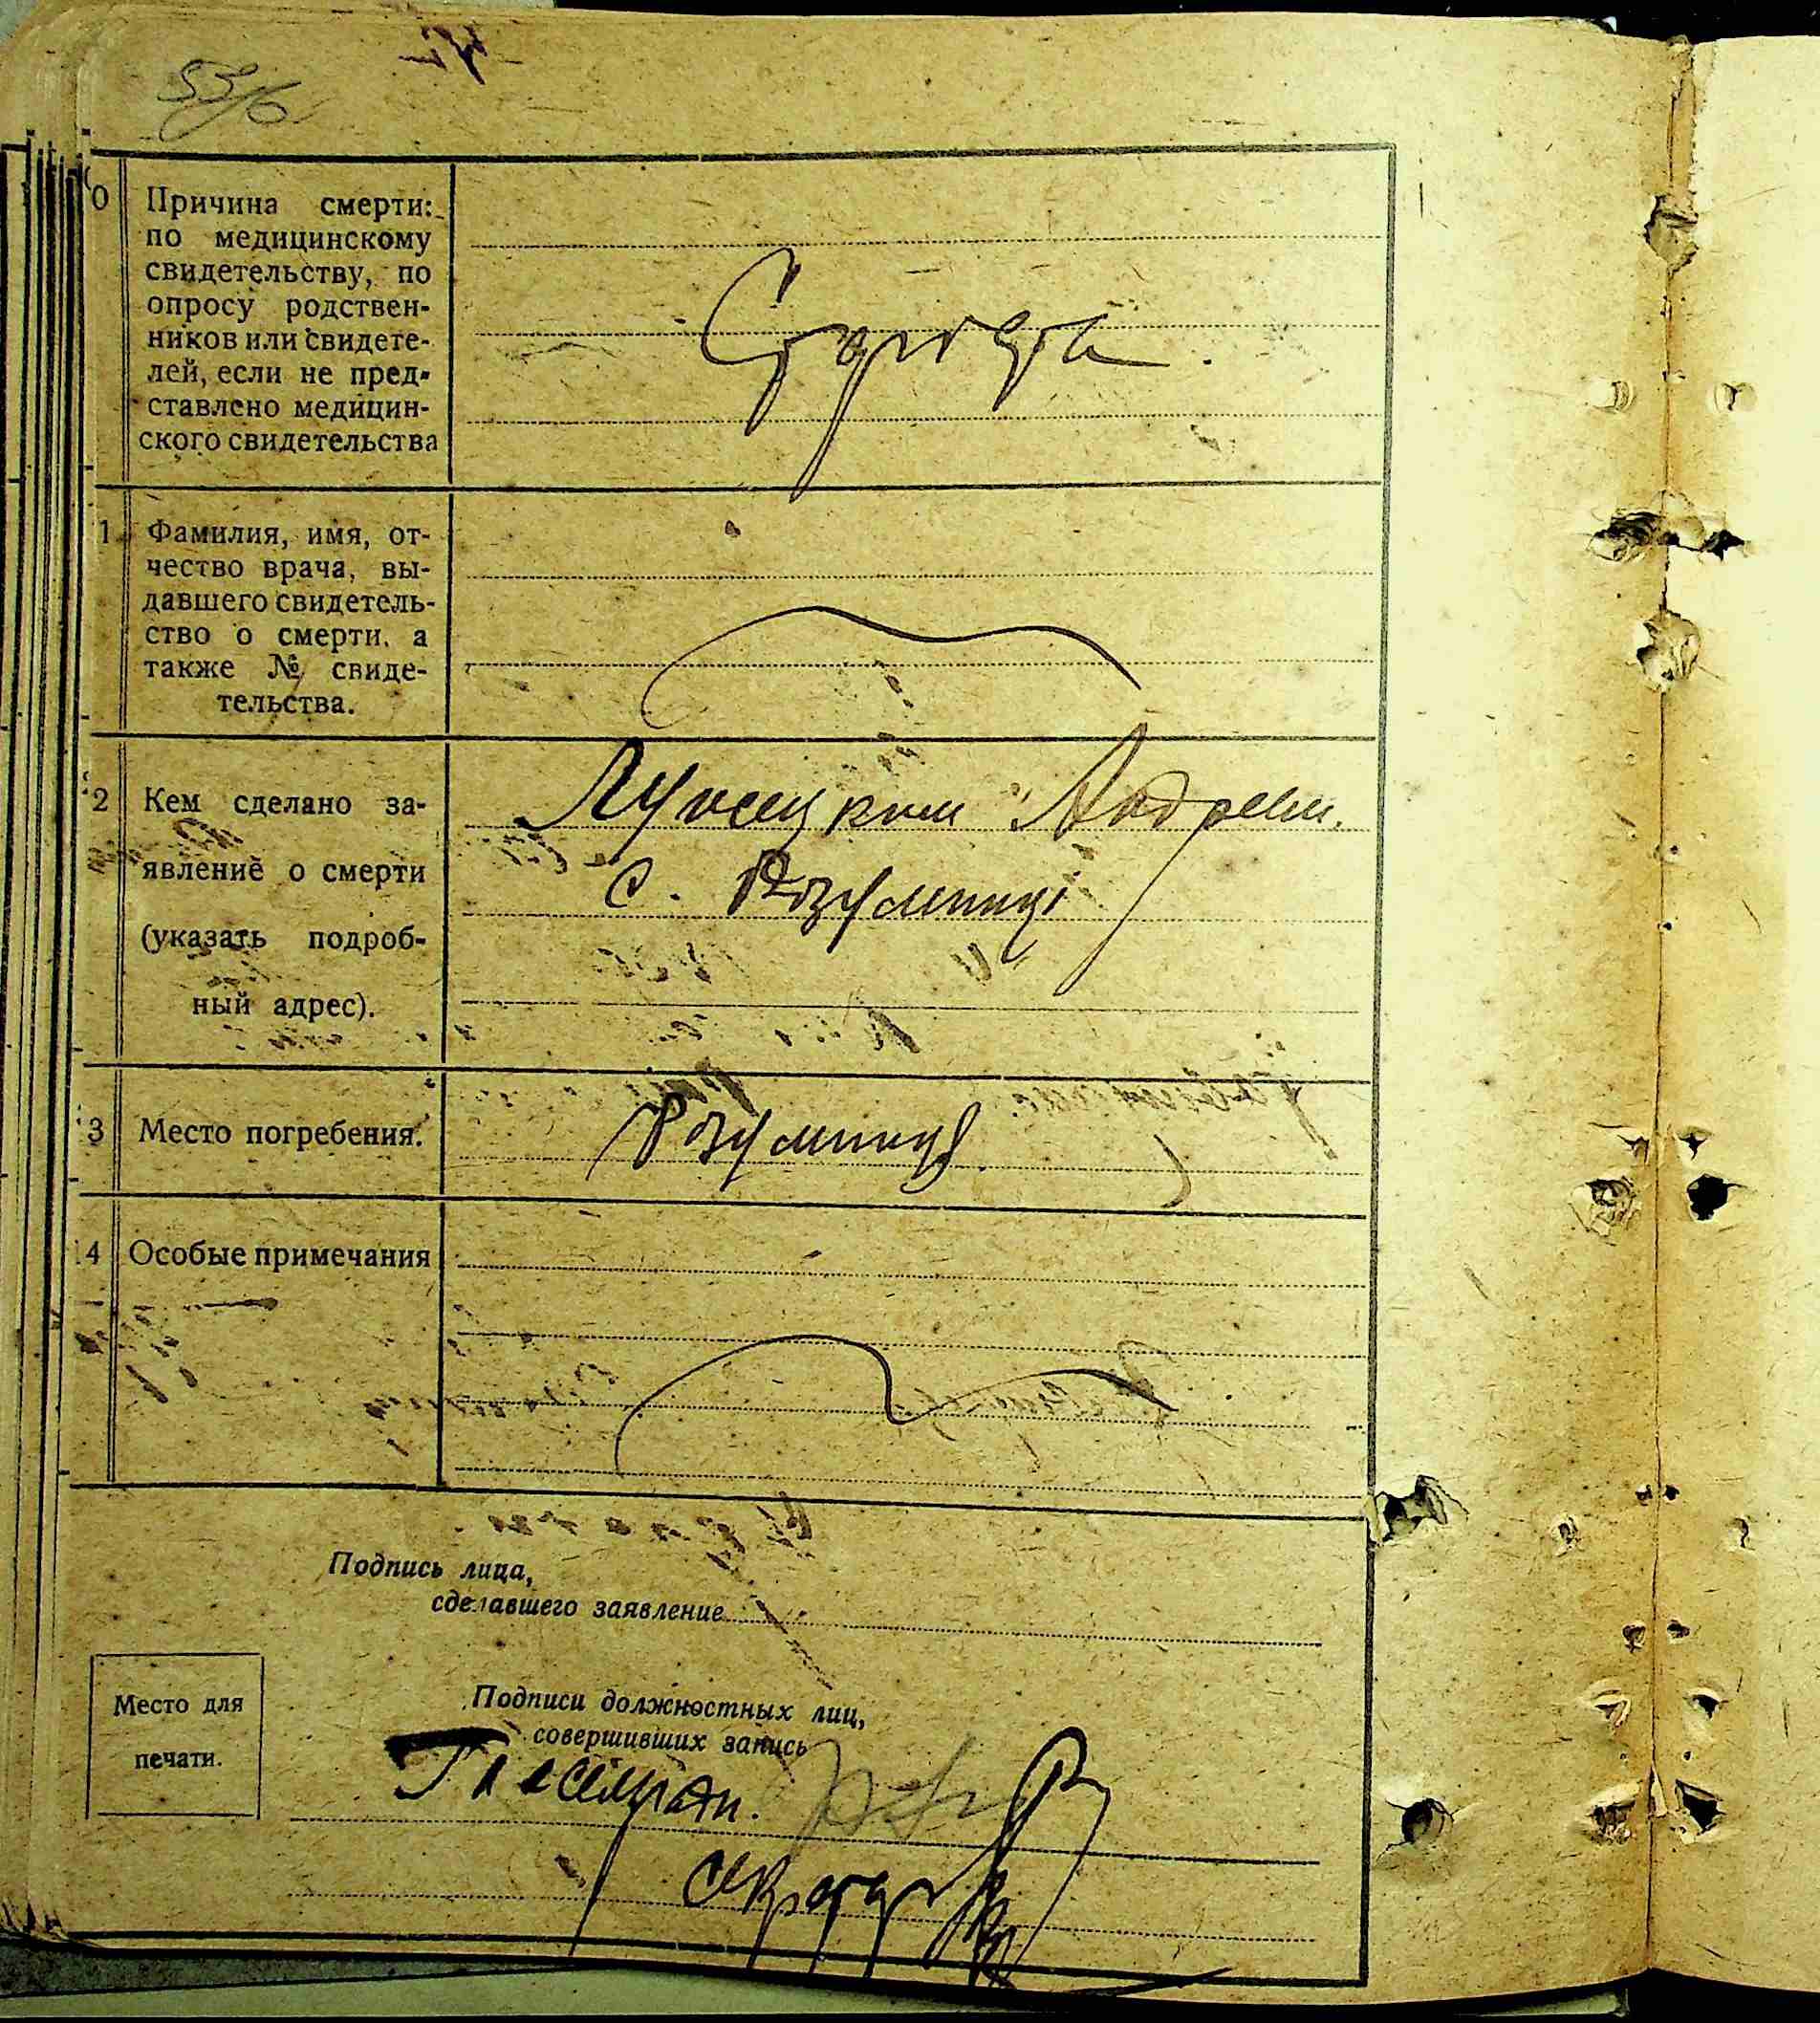 55/6
0 Причина смерти:
по медицинскому
свидетельству, по
опросу родствен-
ников или свидете-
лей, если не пред-
ставлено медицин-
ского свидетельства
1 Фамилия, имя, от-
чество врача, вы-
давшего свидетель-
ство о смерти, а
также № свиде-
тельства.
2 Кем сделано за-
явление о смерти
(указать подроб-
ный адрес).
Андреем.
с. Розумниці
3 Место погребения.
Розумниці
4 Особые примечания
Подпись лица,
сделавшего заявление
Место для
печати.
Подписи должностных лиц,
совершивших запись
секретар